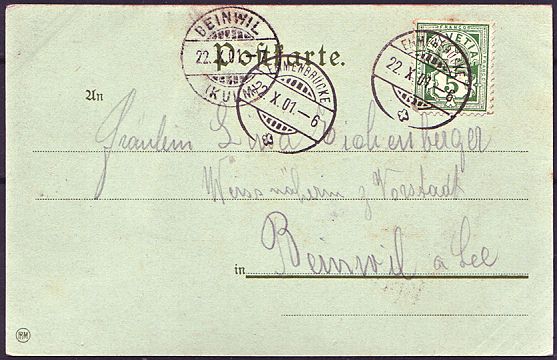 BEINWIL
22. X. 01.-7
(KULM)
Postkarte.
EMMENBRÜCKE
22. X. 01.-6
EMMENBRÜCKE
22. X. 01.-6
HELVETIA
5
An
Fräulein Lina Eichenberger
Weissnäherin z Vorstadt
in Beinwil a See
RM